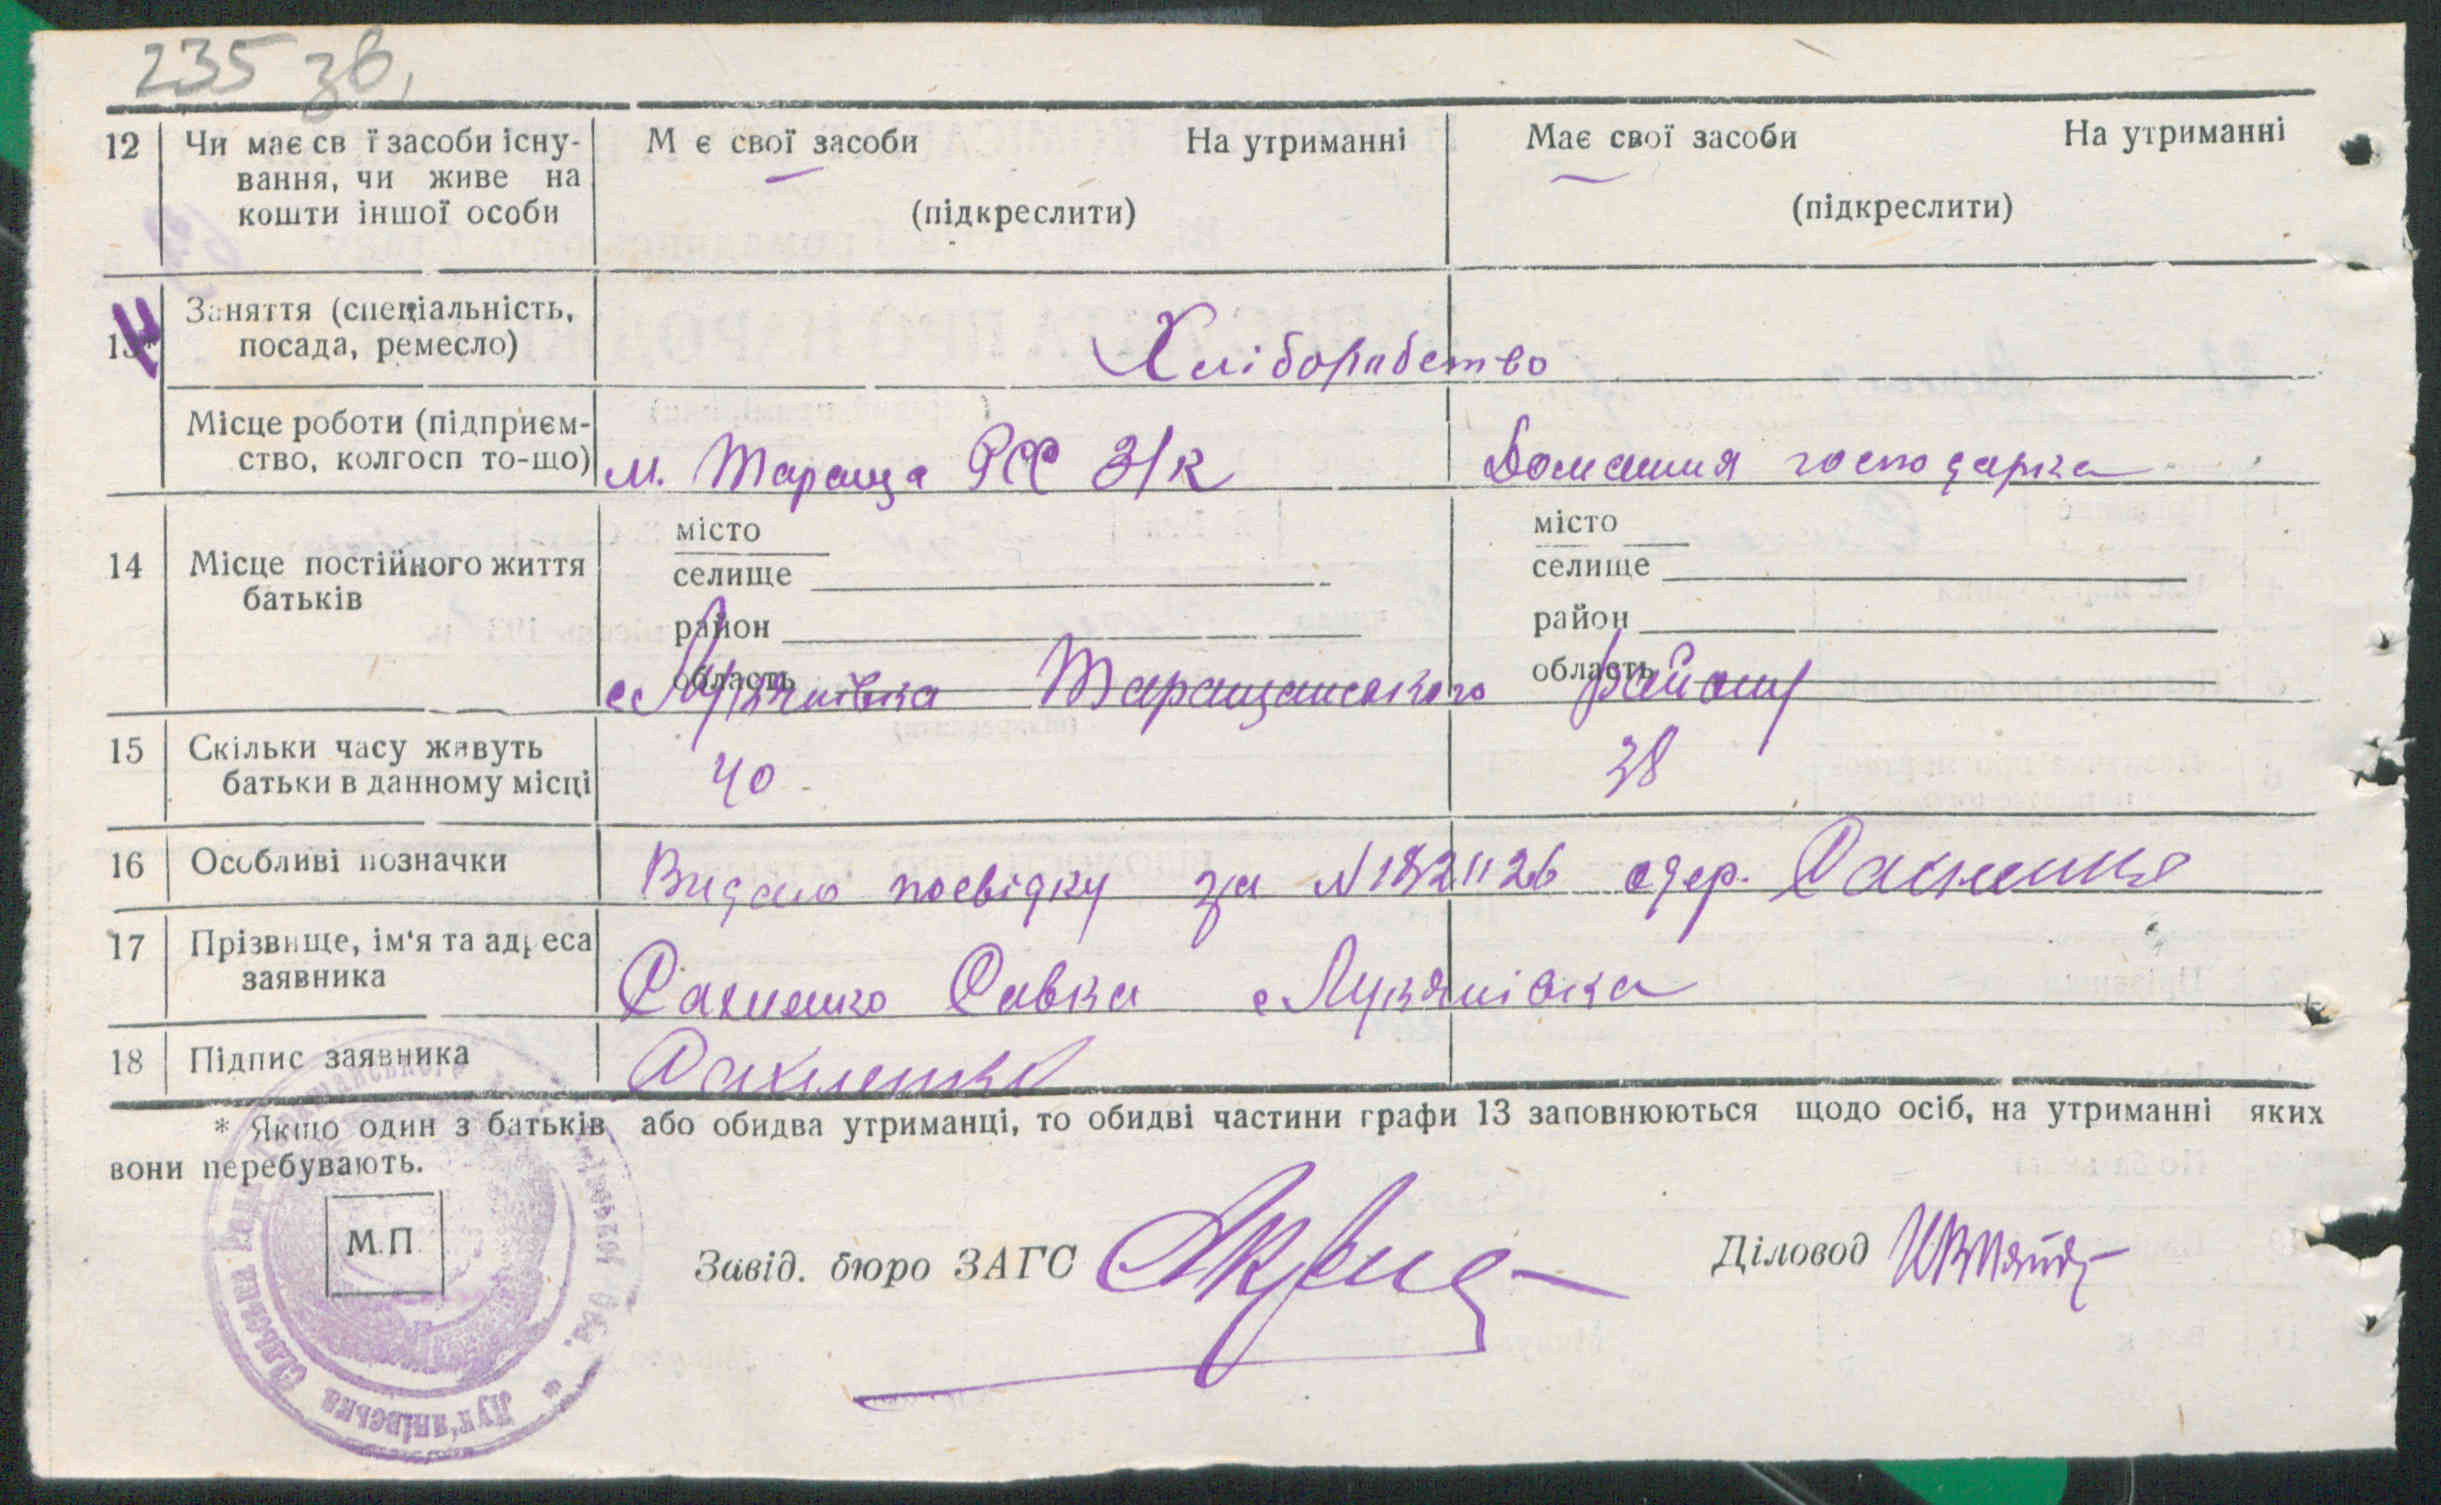 235 зв.
12 Чи має св ї засоби існу- М є свої засоби На утриманні Має свої засоби На утриманні
вання, чи живе на
кошти іншої особи (підкреслити) (підкреслити)
13* Заняття (спеціальність,
посада, ремесло) Хліборобство
Місце роботи (підприєм-
ство, колгосп то-що) м. Тараща РСС З/к Домашня господарка
14 Місце постійного життя
батьків
місто місто
селище селище
район район
область область
с Лукянівка Таращанського району
15 Скільки часу живуть
батьки в данному місці 40 38
16 Особливі позначки Видано посвідку за N 182426 одер. Сахненко
17 Прізвище, ім'я та адреса
заявника Сахненко Савка с Лукянівка
18 Підпис заявника Сахненко
* Якщо один з батьків або обидва утриманці, то обидві частини графи 13 заповнюються щодо осіб, на утриманні яких
вони перебувають.
М.П.
Завід. бюро ЗАГС Діловод
Лук'янівська Сільська Рада Таращанського
Обл.